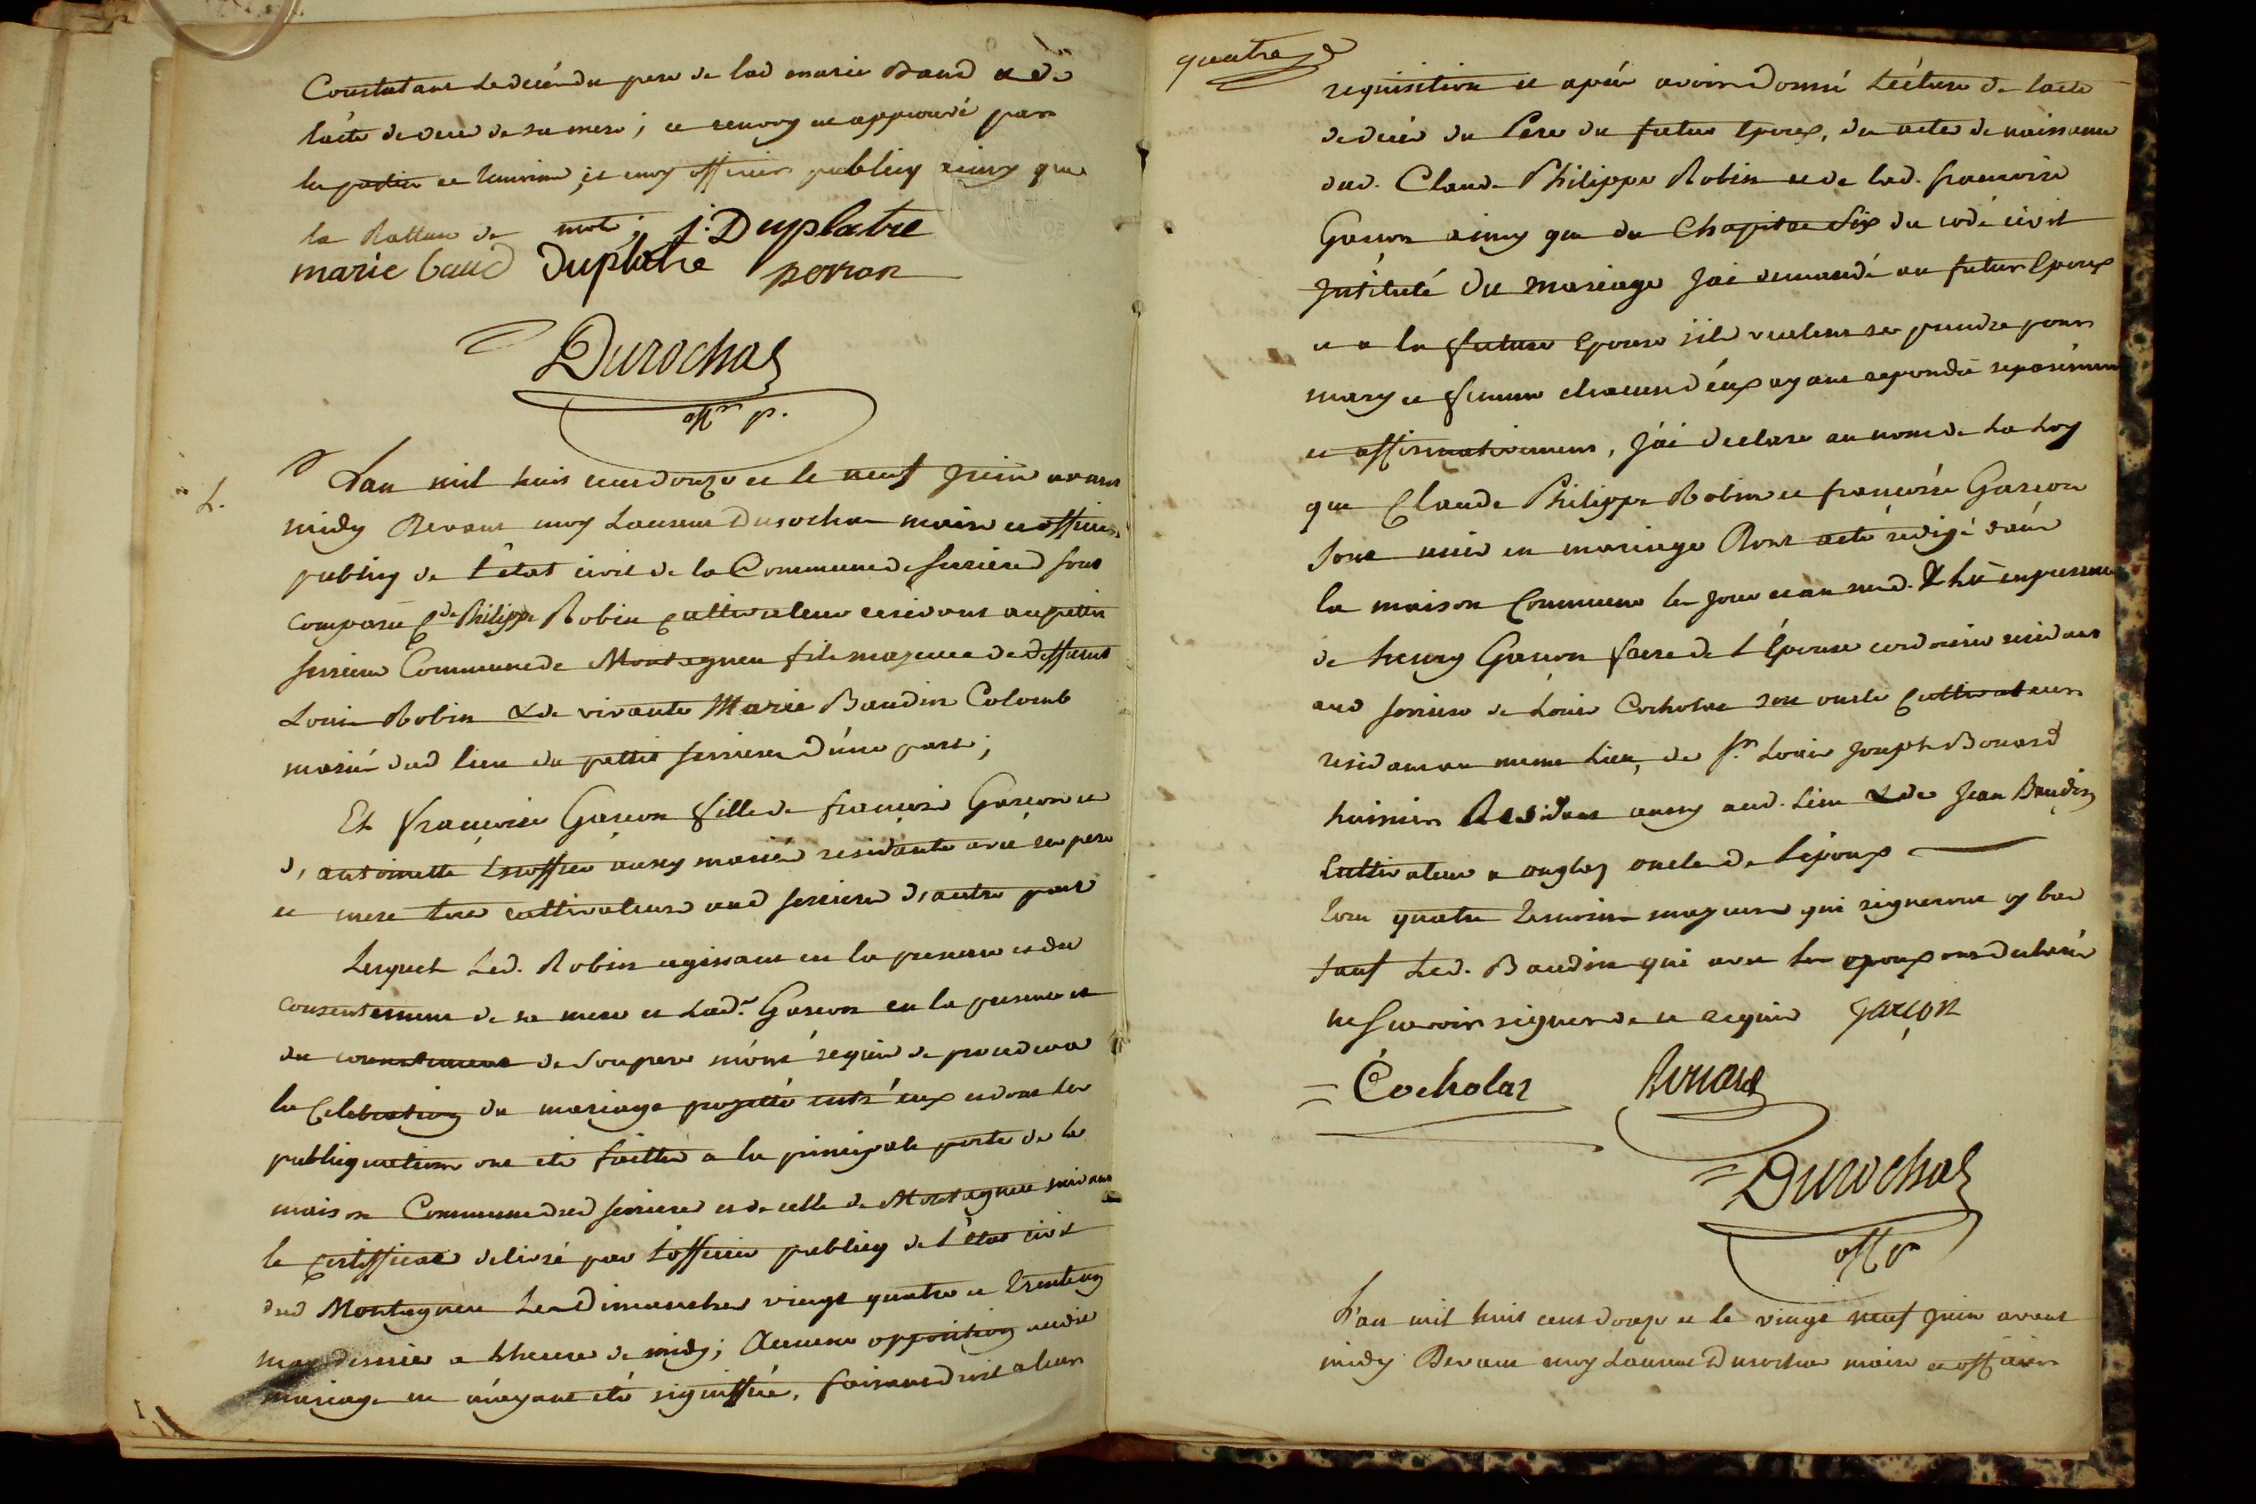 Constatant le décéz du pere de lad marie Baud & de
lacte de deces de sa mere; ce renvoy est approuvé par
les parties et temoins, et moy officier publicq ainsy que
la Rature de mots; j. Duplatre
marie baud Duplatre perran
Durochas
offr p.
4. L'an mil huit cent douze et le neuf juin avant
midy Devant moy Laurent Durochas maire et officier
publicq de l'état civil de la Commune de serrieres sont
comparu Cde Philippe Robin cultivateur residant au petit
serrieres Commune de Montagneu fils majeur de deffunt
Louis Robin & de vivante Marie Baudin Colomb
mariés dud lieu du pettit serrieres d'une part;
Et françoise Garcon fille de françois Garcon et
d'antoinette Escoffier aussy mariés residante avec ses pere
et mere tous cultivateurs aud serrieres d'autre part
Lesquels Led. Robin agissant en la presence et du
consentement de sa mere et Lade. Garcon en la presence et
du consentement de son pere m'ont requis de proceder a
la Celebration du mariage projetté entr'eux et dont les
publiquations ont été faittes a la principale porte de la
maison Commune dud serrieres et de celle de Montagneu suivant
le certifficat delivré par l'officier publicq de l'état civil
dud Montagneu Les Dimanches vingt quatre et trente un
may dernier a l'heure de midy; Aucune opposition audit
mariage ne m'ayant été signiffiée, faisant droit a leur
quatre
requisition et après avoir donné Lécture de l'acte
de décés du Pere du futur Epoux, des actes de naissance
dud. Claude Philippe Robin et de lad. francoise
Garcon ainsy que du Chapitre Six du code civil
Intitulé Du Mariage J'ai demandé au futur Epoux
et a la future Epouse s'ils veulent se prendre pour
mary et femme chacun d'éux ayant repondu séparément
et affirmativement, j'ai déclaré au nom de La Loy
que Claude Philippe Robin et francoise Garcon
sont unis en mariage Dont acte rédigé dans
la maison Commune les jour et an susd. & ce en presence
de henry Garcon frere de l'Epouse cordonnier residant
aud serrieres de Louis Cocholat son oncle Cultivateur
residant au meme Lieu, de Sr. Louis Joseph Bonard
huissier Residant aussy aud. Lieu & de Jean Baudin
Cultivateur a onglas oncle de l'époux
tous quatre temoins majeurs qui signeront cy bas
sauf Led. Baudin qui avec les epoux ont declaré
ne scavoir signer de ce requis garçon
Cocholat Bonard
Durochas
off p
L'an mil huit cent douze et le vingt neuf juin avant
midy Devant moy Laurent Durochas maire et officier